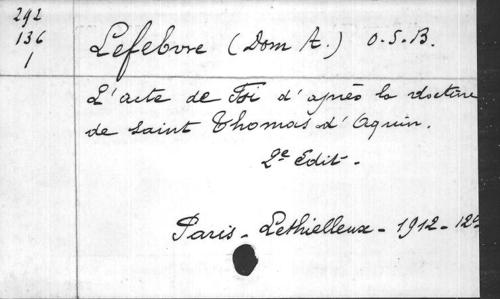 292
136
1
Lefebvre (Dom A.) O.S.B.
L'acte de Foi d'après la doctrine
de saint Thomas d'Aquin.
2e Edit.
Paris - Lethielleux - 1912 - 12°